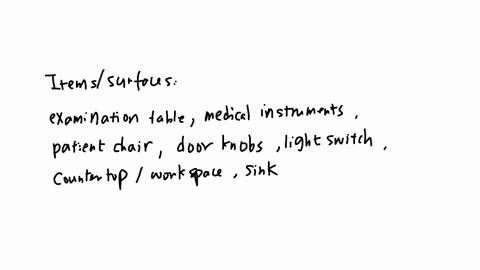 Items/surfaces:
examination table, medical instruments,
patient chair, door knobs, light switch,
countertop / workspace, sink